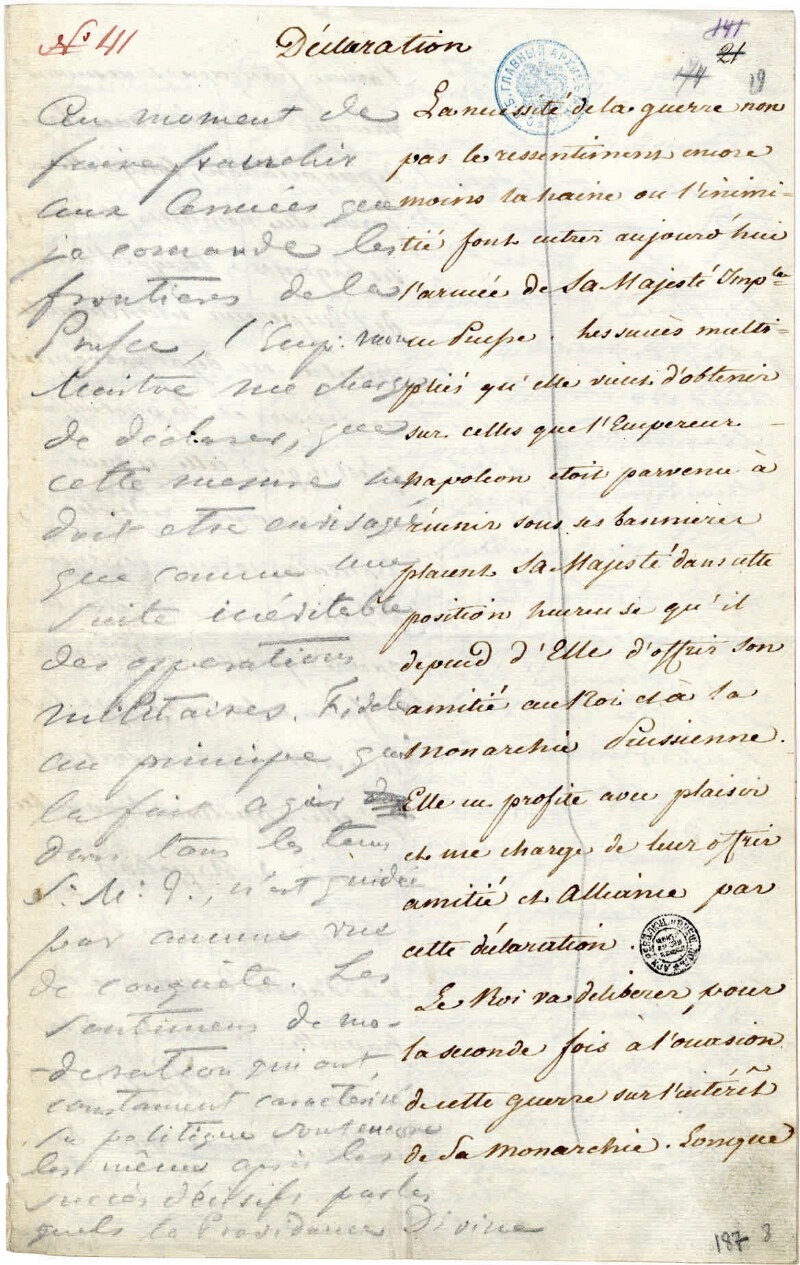 № 41
Déclaration
141
21
174
19
С.П.Б. ГЛАВНЫЙ АРХИВ
Au moment de
faire franchir
aux Armées que
je comande les
frontieres de la
Prusse, l'Emp: mon
Maitre me charge
de déclarer, que
cette mesure ne
doit etre envisagée
que comme une
suite inévitable
des opperations
militaires. Fidele
au principe qui
la fait agir
dans tous les tems
S: M: I., n'est guidée
par aucune vue
de conquête. Les
sentimens de mo-
-deration qui ont
constament caracterisé
sa politique sont encore
les même après les
succès décisifs par les
quels la Providence Divine
La nécessité de la guerre non
pas le ressentiment encore
moins la haine ou l'inimi-
tié font entrer aujourd'hui
l'armée de Sa Majesté Imp^le
en Prusse. Les succès multi-
pliés qu'elle vient d'obtenir
sur celles que l'Empereur
napoleon etoit parvenu à
réunir sous ses bannieres
placent Sa Majesté dans cette
position heureuse qu'il
depend d'Elle d'offrir son
amitié au Roi et à la
Monarchie Prussienne.
Elle en profite avec plaisir
et me charge de leur offrir
amitié et Alliance par
cette déclaration.
Le Roi va deliberer pour
la seconde fois à l'occasion
de cette guerre sur l'intérêt
de Sa Monarchie. Lorsque
187
8